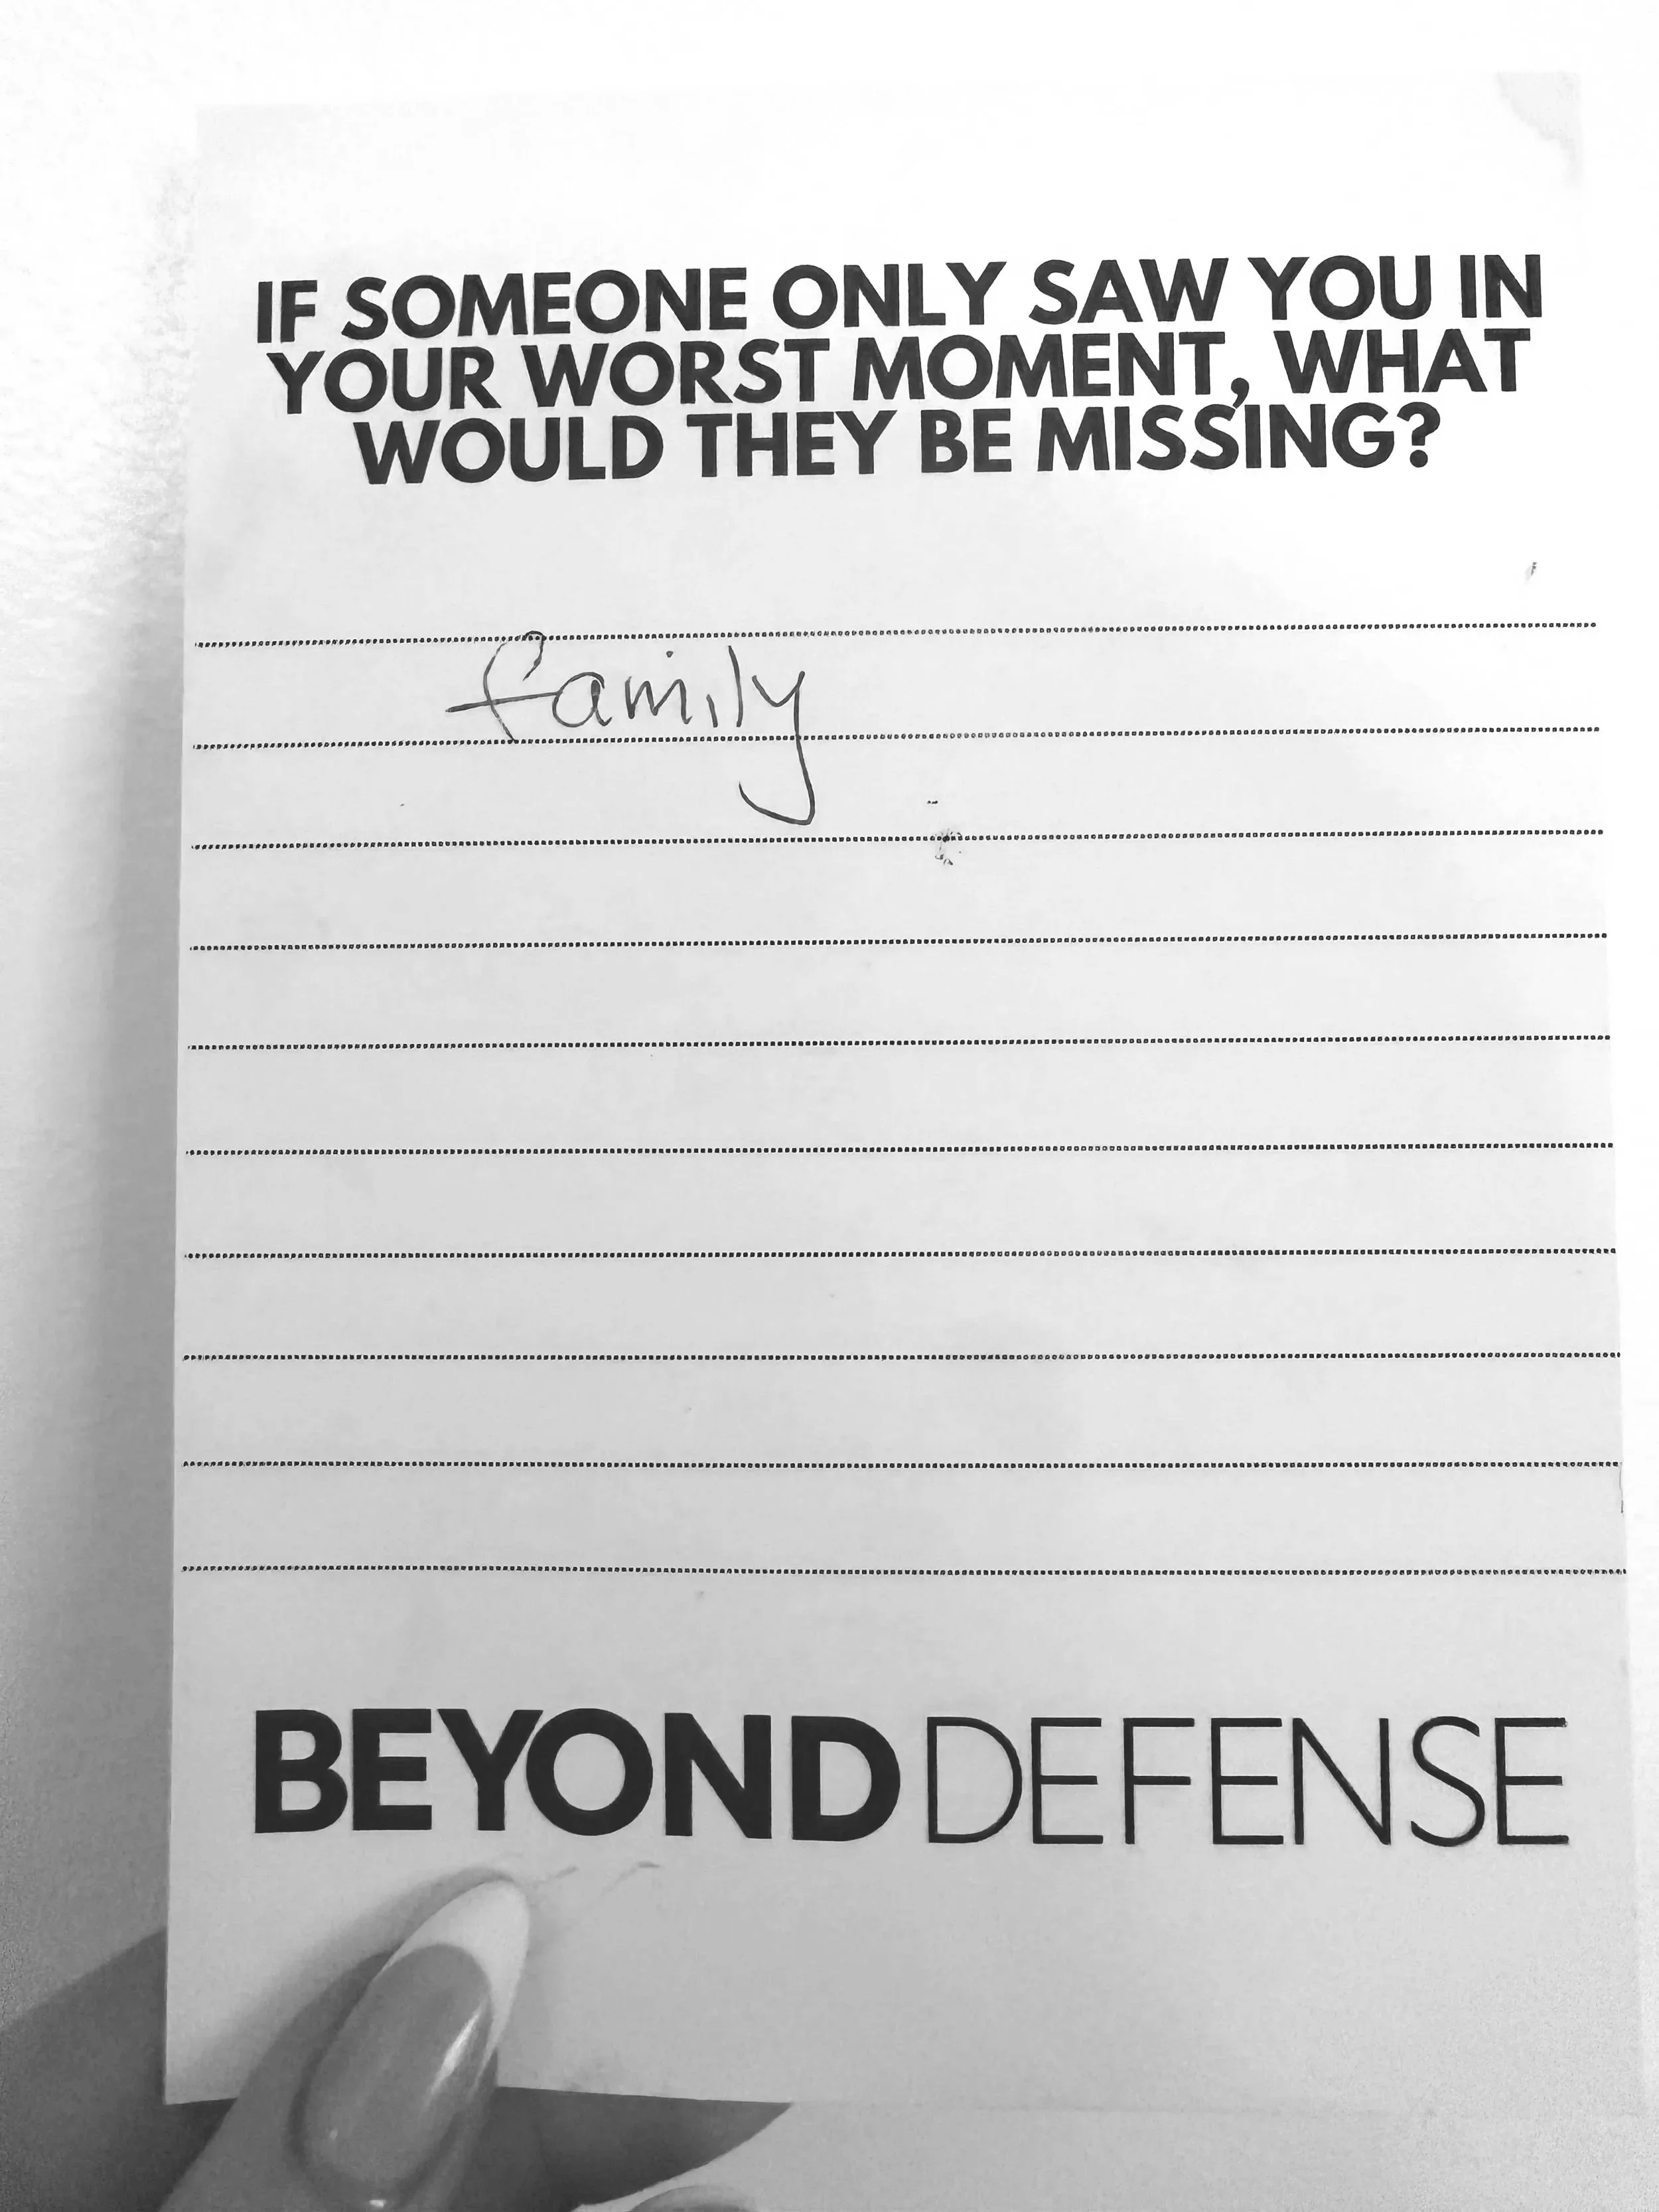 IF SOMEONE ONLY SAW YOU IN
YOUR WORST MOMENT, WHAT
WOULD THEY BE MISSING?
family
BEYOND DEFENSE